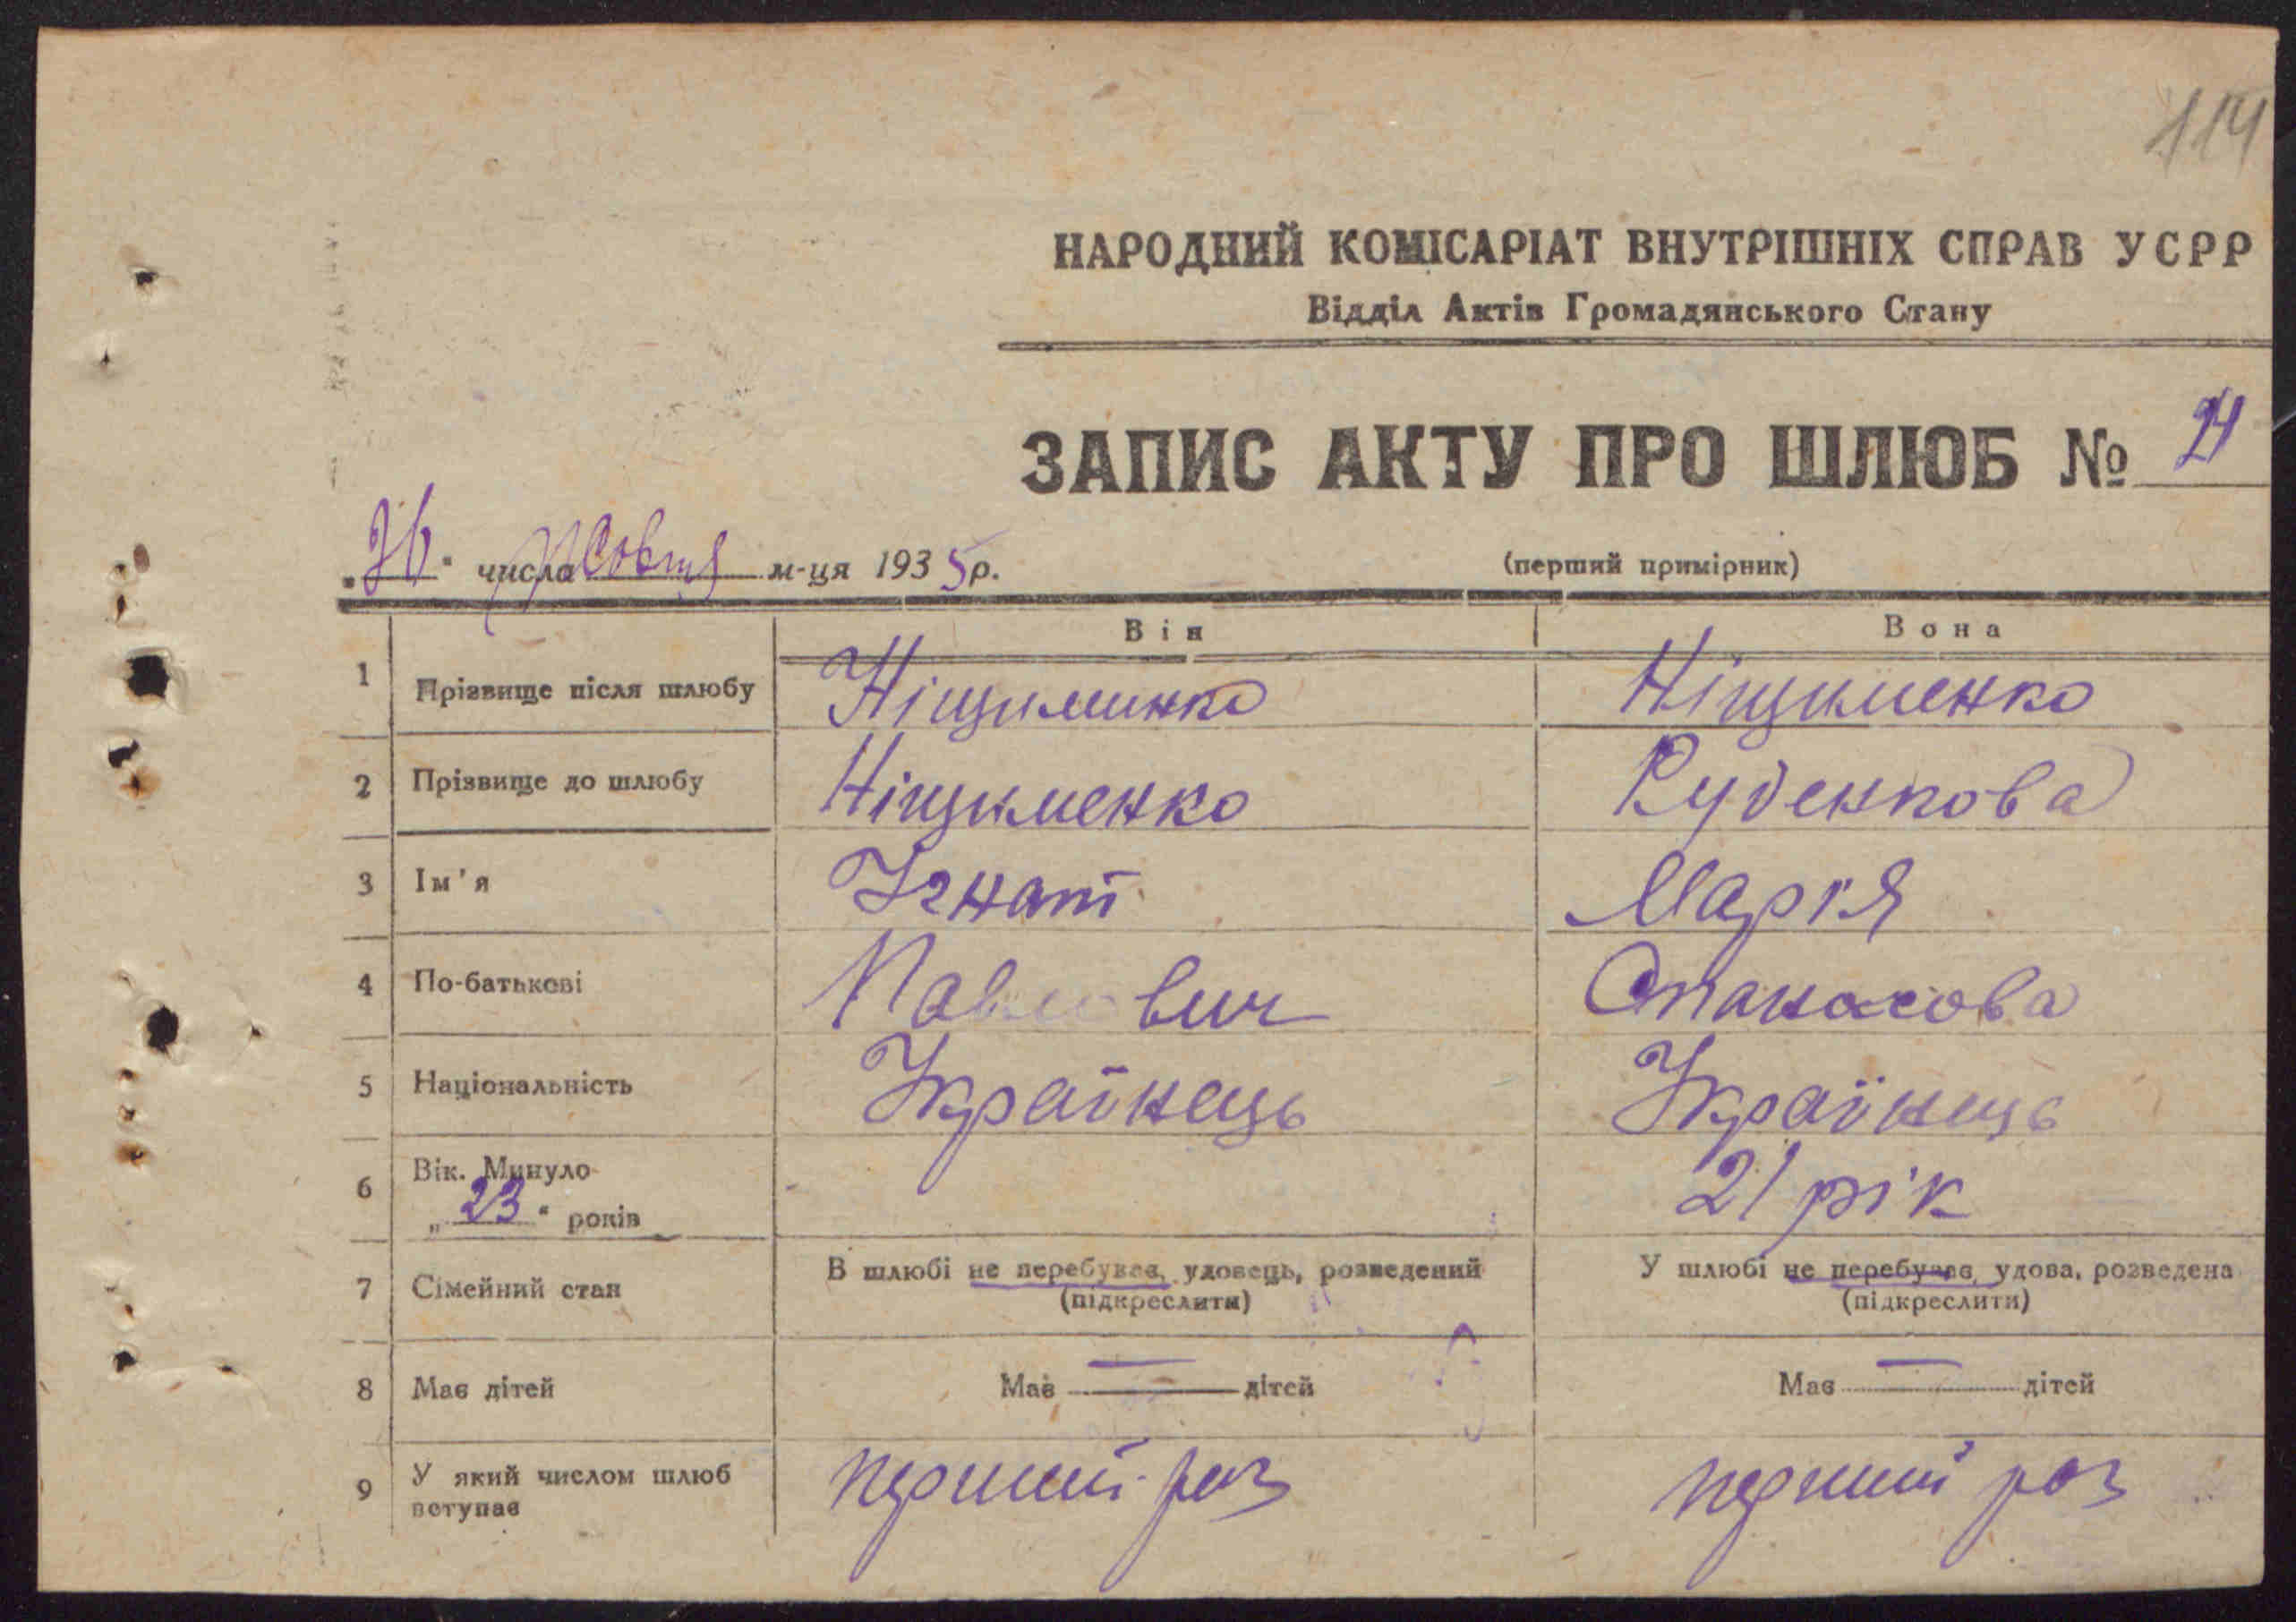 114
НАРОДНИЙ КОМІСАРІАТ ВНУТРІШНІХ СПРАВ УСРР
Відділ Актів Громадянського Стану
ЗАПИС АКТУ ПРО ШЛЮБ № 24
„26“ числа Жовтня м-ця 1935 р.
(перший примірник)
Він Вона
1 Прізвище після шлюбу Ніщименко Ніщименко
2 Прізвище до шлюбу Ніщименко Руденкова
3 Ім'я Ігнат Марія
4 По-батькові Павлович Опанасова
5 Національність Українець Українець
6 Вік. Минуло
„23“ років 21 рік
7 Сімейний стан В шлюбі не перебуває, удовець, розведений У шлюбі не перебуває, удова, розведена
(підкреслити) (підкреслити)
8 Має дітей Має — дітей Має — дітей
9 У який числом шлюб
вступає перший раз перший раз